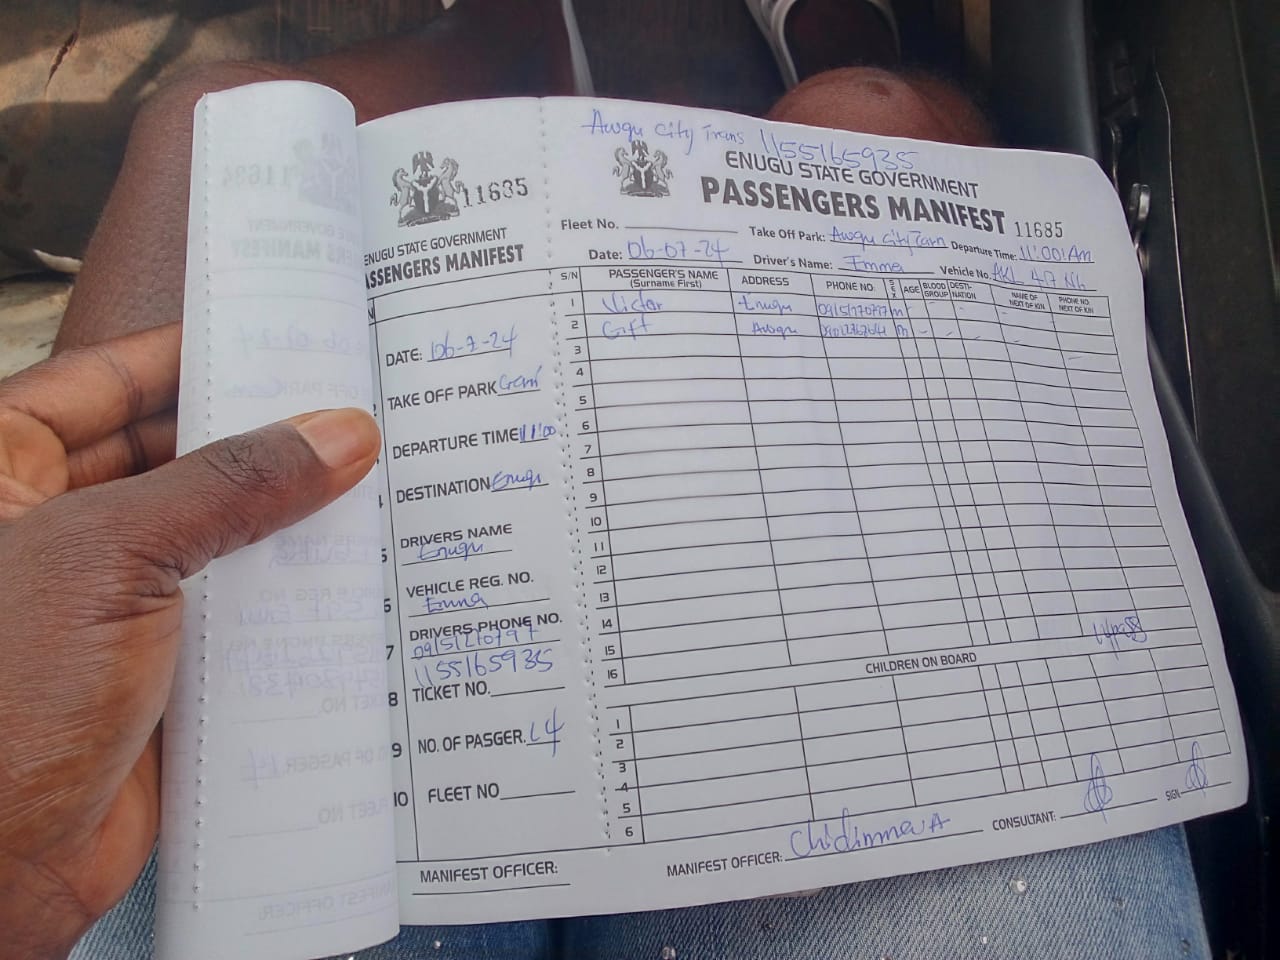 11685
ENUGU STATE GOVERNMENT
PASSENGERS MANIFEST
DATE: 06-7-24
TAKE OFF PARK
DEPARTURE TIME 11:00
DESTINATION Enugu
DRIVERS NAME
Enugu
VEHICLE REG. NO.
Emma
DRIVERS PHONE NO.
1155165935
TICKET NO.
NO. OF PASGER. 14
FLEET NO
MANIFEST OFFICER:
Awgu City Trans 1155165935
ENUGU STATE GOVERNMENT
PASSENGERS MANIFEST 11685
Fleet No. Take Off Park: Awgu City Departure Time: 11:00 Am
Date: 06-07-24 Driver's Name: Emma Vehicle No.
S/N PASSENGER'S NAME (Surname First) ADDRESS PHONE NO. SEX AGE BLOOD GROUP DESTI-NATION NAME OF NEXT OF KIN PHONE NO. NEXT OF KIN
1 Victor Enugu m
2 Gift Awgu m
3
4
5
6
7
8
9
10
11
12
13
14
15
16
CHILDREN ON BOARD
1
2
3
4
5
6
MANIFEST OFFICER: Chidimma A CONSULTANT: SIGN